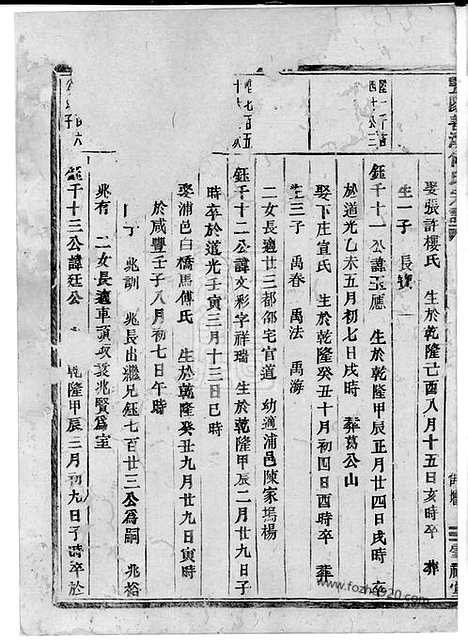 娶張許樓氏 生於乾隆己酉八月十五日亥時卒 葬
生一子 長寶
鈺千十一公諱 應 生於乾隆甲辰正月廿四日戌時 卒
於道光乙未五月初七日戌時 葬葛公山
娶下庄宣氏 生於乾隆癸丑十月初四日酉時卒 葬
生三子 禹春 禹法 禹海
二女長適廿三都邵宅官道 幼適浦邑陳家塢楊
鈺千十二公諱文彩字祥瑞 生於乾隆甲辰二月廿九日子
時卒於道光壬寅三月十三日巳時
娶浦邑白橋馬傅氏 生於乾隆癸丑九月廿九日寅時
於咸豐壬子八月初七日午時
兆訓 兆長出繼兄鈺七百廿三公為嗣 兆裕
兆有 二女長適車頭 兆賢為室
鈺千十三公諱廷公 乾隆甲辰三月初九日子時卒於
www.fozhu920.com